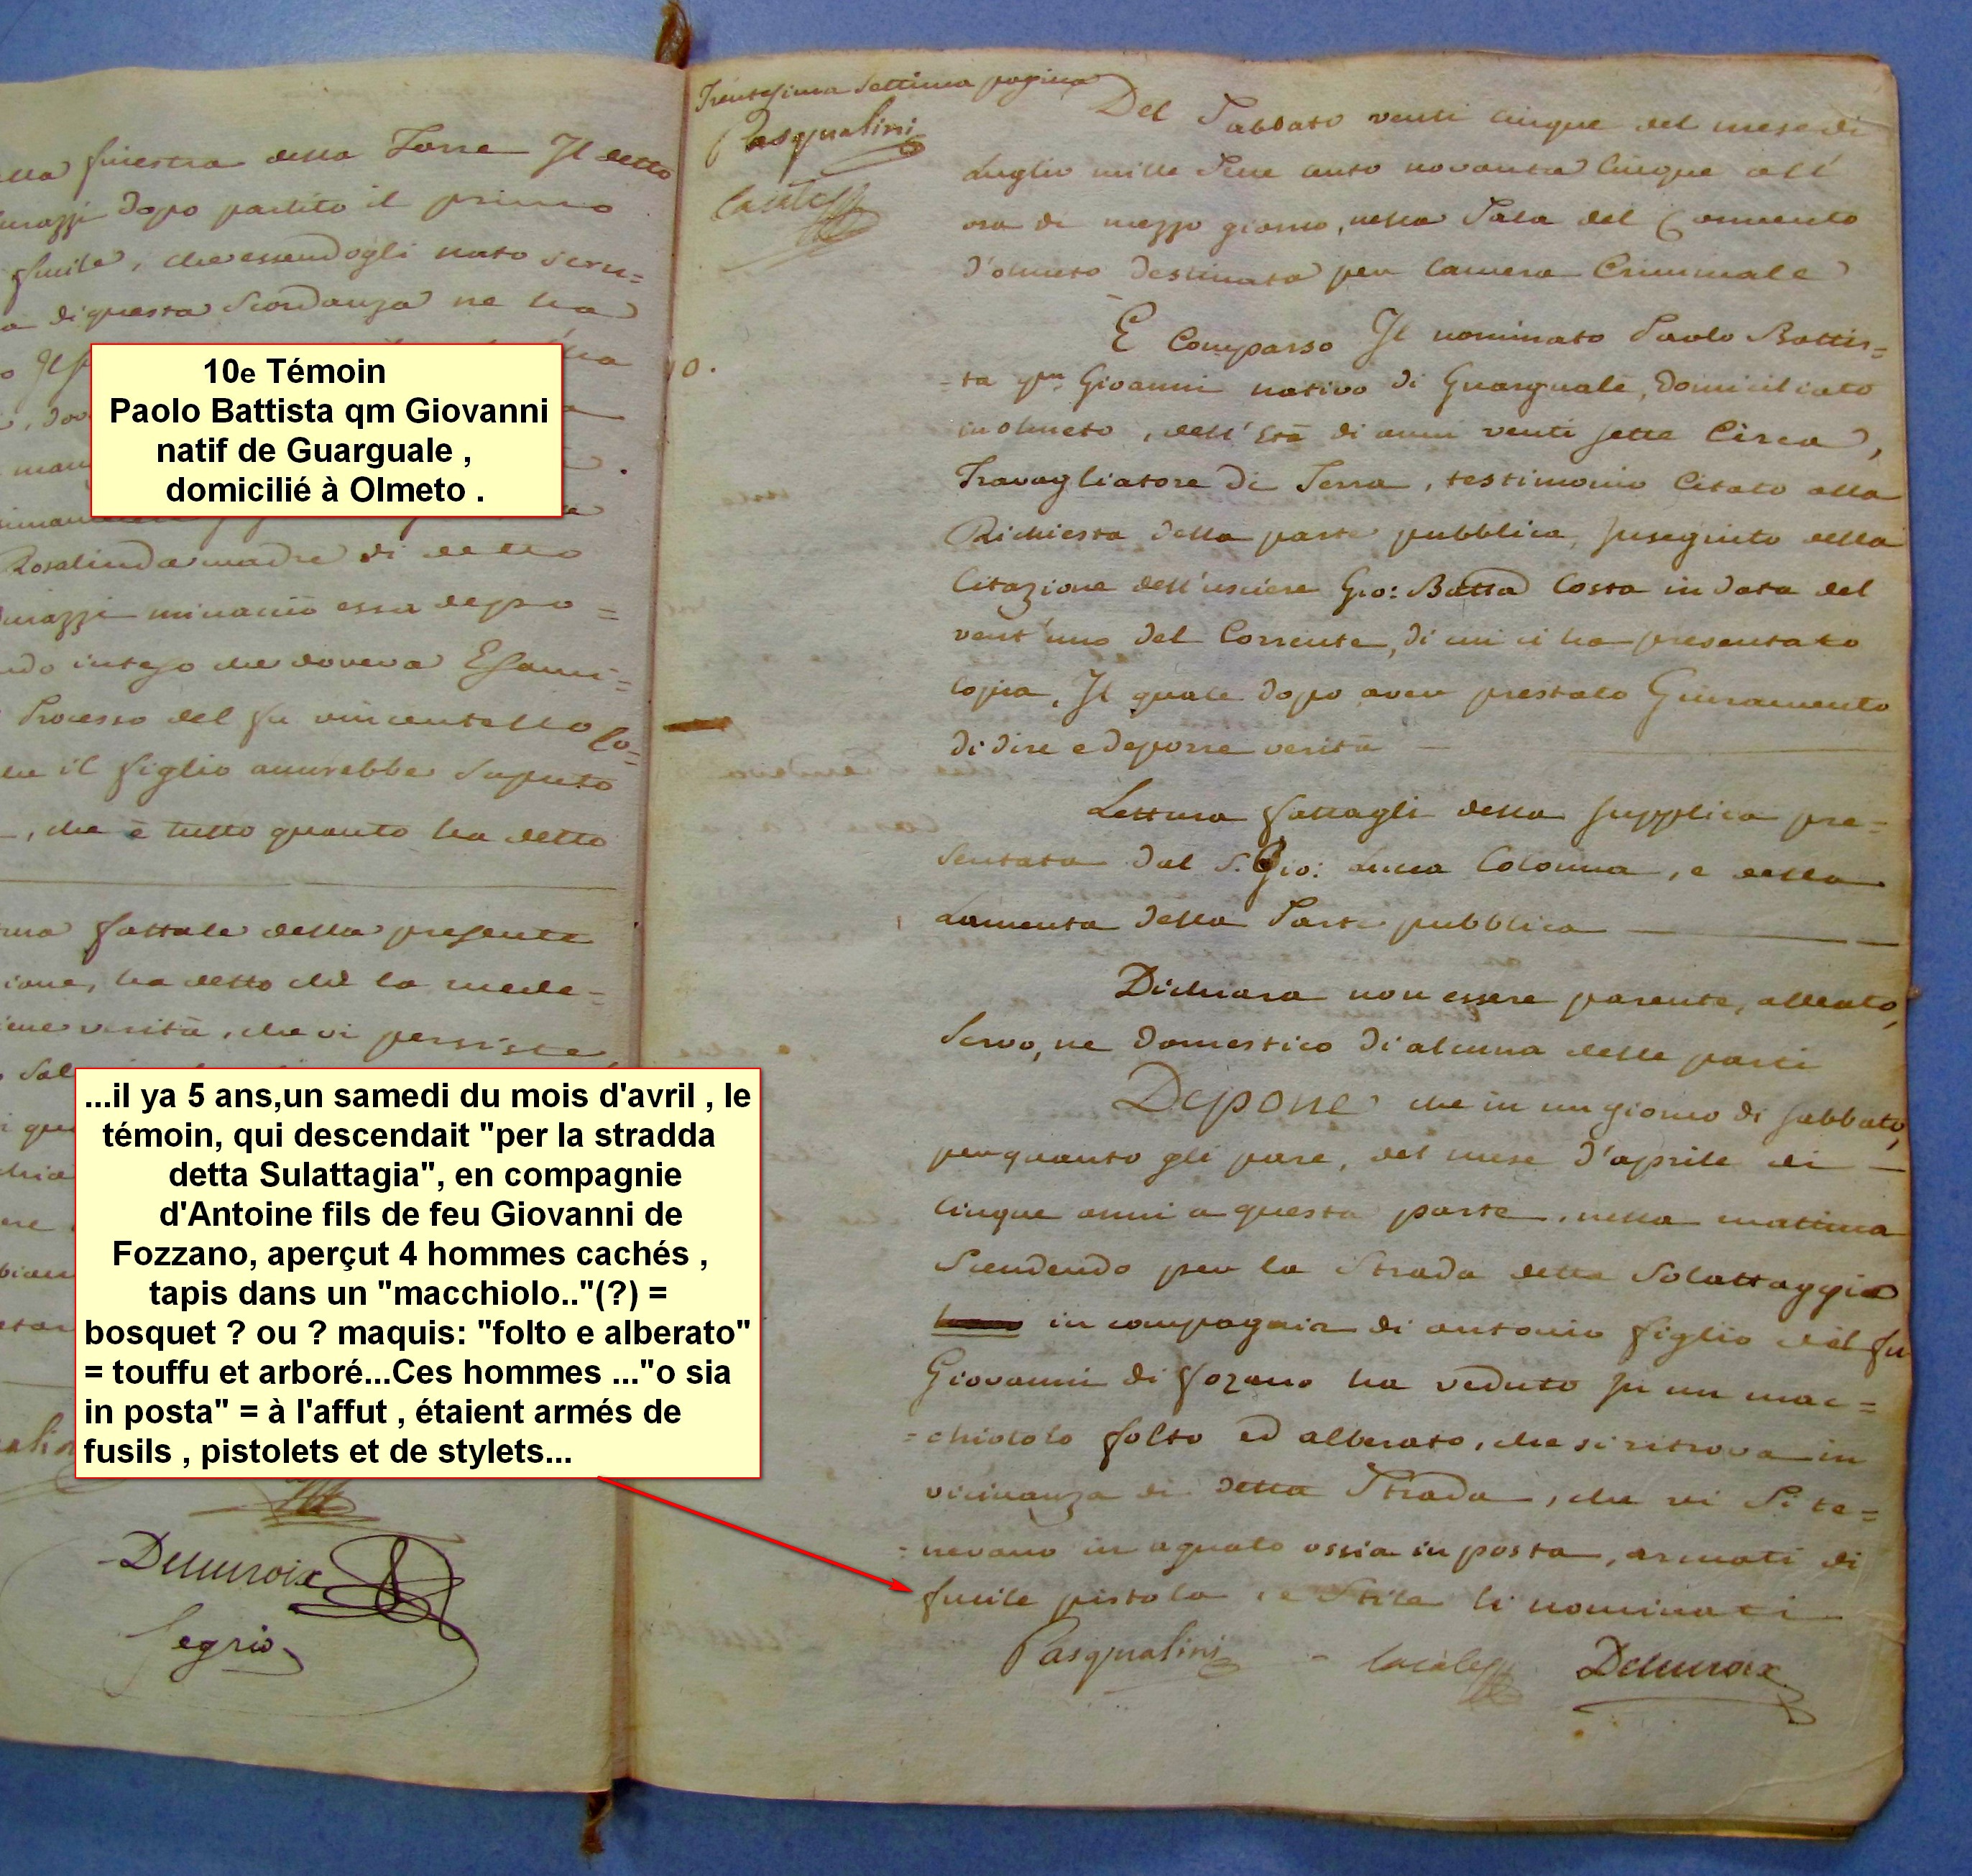 ella finestra della Torre Il detto
dopo partito il primo
fucile, che essendogli nato scru=
a di questa Scordanza ne ha
Rosalinda madre di detto
minacciò essa depo=
ndo inteso che doveva Esami=
Processo del fu vincentello Co=
che il figlio averebbe Saputo
, che è tutto quanto ha detto
fattale della presente
ione, ha detto che la mede=
verità, che vi persiste
10e Témoin
Paolo Battista qm Giovanni
natif de Guarguale ,
domicilié à Olmeto .
...il ya 5 ans,un samedi du mois d'avril , le
témoin, qui descendait "per la stradda
detta Sulattagia", en compagnie
d'Antoine fils de feu Giovanni de
Fozzano, aperçut 4 hommes cachés ,
tapis dans un "macchiolo.."(?) =
bosquet ? ou ? maquis: "folto e alberato"
= touffu et arboré...Ces hommes ..."o sia
in posta" = à l'affut , étaient armés de
fusils , pistolets et de stylets...
Segrio
Trentesima Settima pagina
Pasqualini
Del Sabbato venti cinque del mese di
Luglio mille Sette cento novanta Cinque all'
ora di mezzo giorno, nella Sala del Convento
d'olmeto destinata per Camera Criminale
10.
E Comparso Il nominato Paolo Battis=
=ta qm Giovanni nativo di Guarguale, domiciliato
in olmeto, dell'età di anni venti sette Circa,
Travagliatore di Terra, testimonio Citato alla
Richiesta della parte pubblica, in seguito della
Citazione dell'usciere Gio: Batta Costa in data del
vent'uno del Corrente, di cui ci ha presentato
Copia, Il quale dopo aver prestato Giuramento
di dire e deporre verità
Lettura fattagli della supplica pre=
sentata dal S. Gio: Luca Colonna, e della
Lamenta della Parte pubblica
Dichiara non essere parente, alleato,
Servo, ne domestico di alcuna delle parti
Depone che in un giorno di sabbato,
per quanto gli pare, del mese d'aprile di
Cinque anni a questa parte, nella mattina
Scendendo per la Strada detta Solattaggia
in compagnia di antonio figlio del fu
Giovanni di fozano ha veduto in un mac=
=chiololo folto ed alberato, che si ritrova in
vicinanza di detta Strada, che vi Si te=
=nevano in aguato ossia in posta, armati di
fucile pistola, e Stile li nominati
Pasqualini